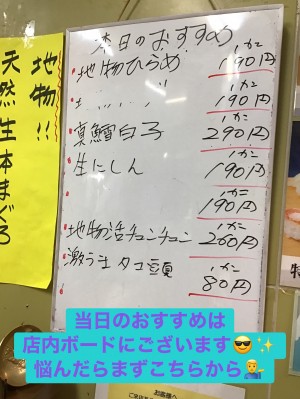 本日のおすすめ
地物ひらめ 1カン 190円
1カン 190円
真鱈白子 1カン 290円
生にしん 1カン 190円
1カン 190円
地物活チョンチョン 1カン 260円
1カン 80円
地物!!
天然生本まぐろ
当日のおすすめは
店内ボードにございます😎✨
悩んだらまずこちらから💁‍♂️